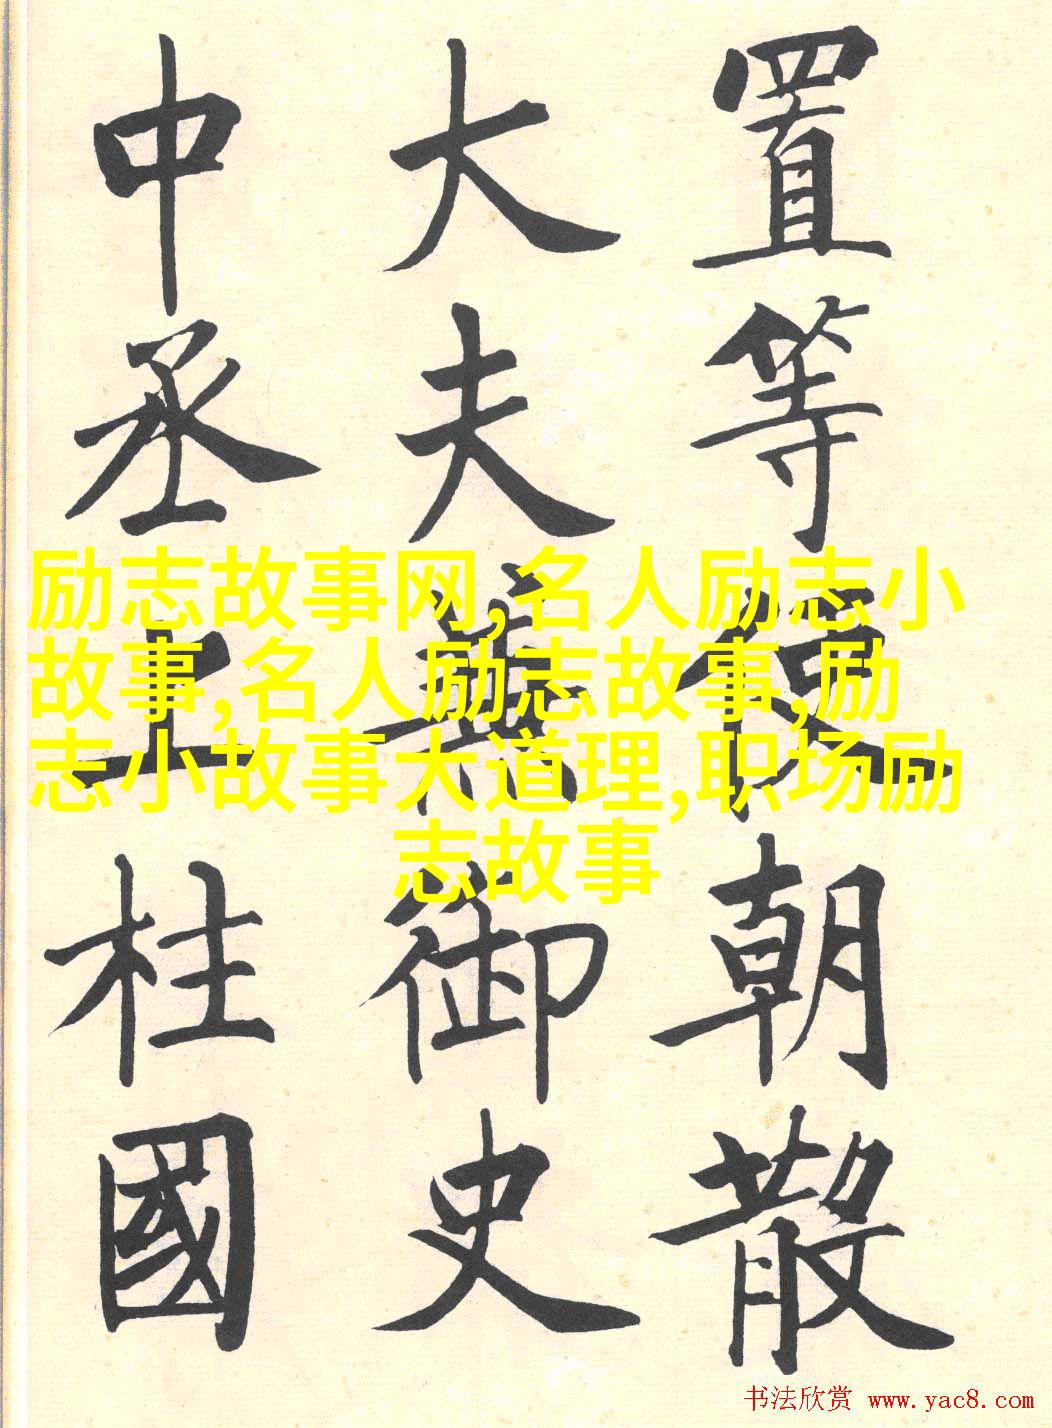 置等使朝散
大夫兼御史
中丞上柱國
励志故事网,名人励志小
故事,名人励志故事,励
志小故事大道理,职场励
志故事
书法欣赏 www.yac8.com